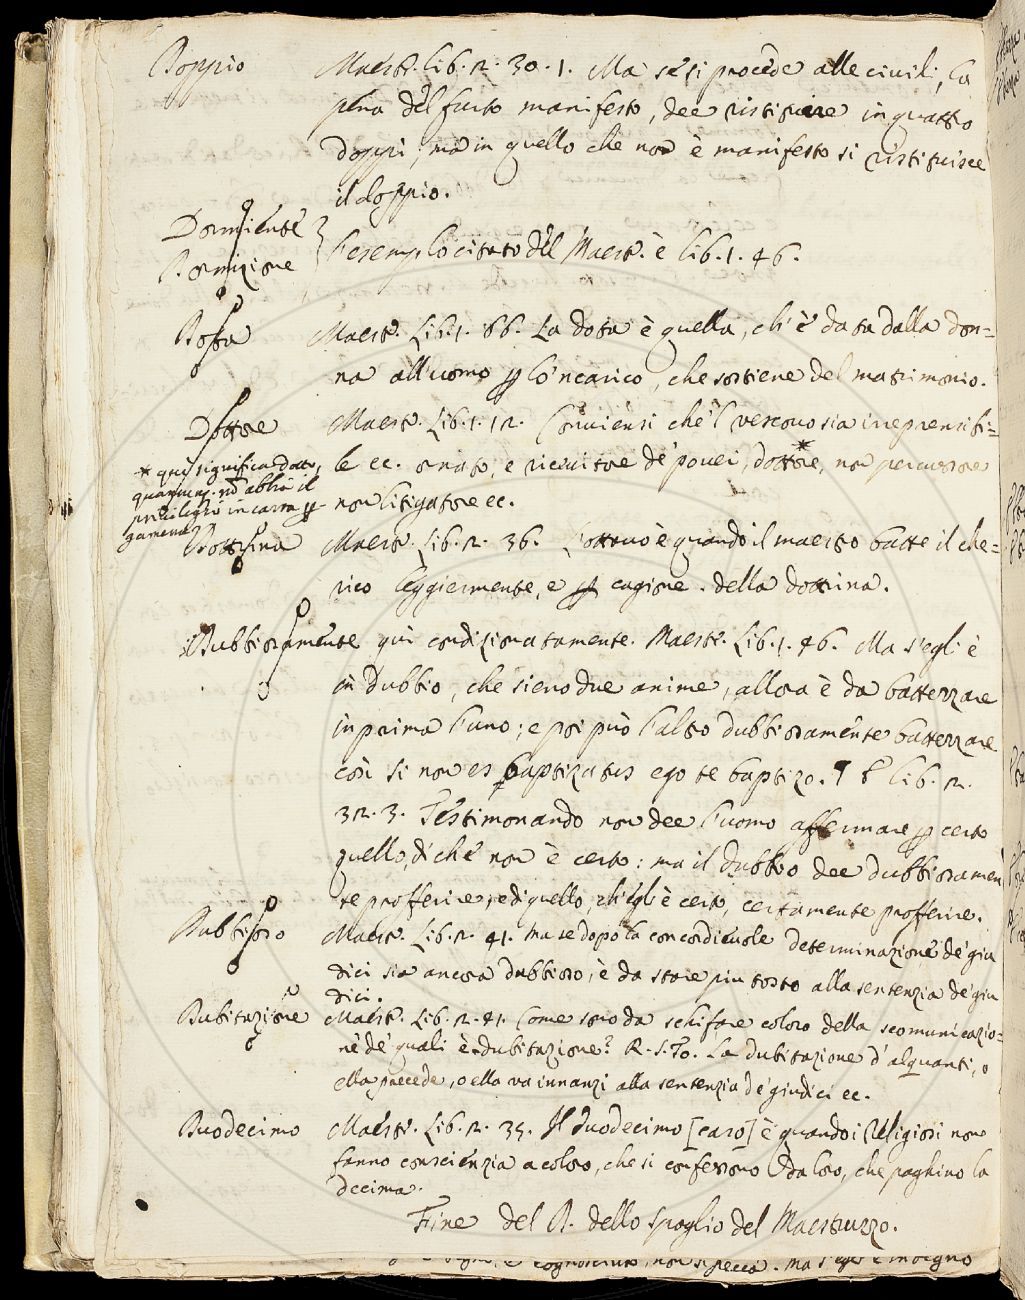 Doppio Maestr. Lib. 2. 30. 1. Ma se si procede alle civili, la
pena del furto manifesto, dee ristituire in quattro
doppi; ma in quello che non è manifesto si ristituisce
il doppio.
Dormiente
Dormizione } L'esemplo citato del Maestr. è Lib. 1. 46.
Dota Maestr. Lib. 1. 66. La dota è quella, ch'è data dalla don=
na all'uomo p lo 'ncarico, che sostiene del matrimonio.
Dottore Maestr. Lib. 1. 12. Conviensi che 'l vescovo sia inreprensibi=
le ec. ornato, e ricevitore de' poveri, dottore,* non percussore
non litigatore ec.
* qui significa dotto,
quantunq. nō abbia il
privilegio in carta p
gamena
Dottrina Maestr. Lib. 2. 36. L'ottavo è quando il maestro batte il che=
rico leggiermente, e p cagione della dottrina.
Dubbiosamente qui condizionatamente. Maestr. Lib. 1. 46. Ma s'egli è
in dubbio, che sieno due anime, allora è da battezzare
in prima l'uno; e poi può l'altro dubbiosamente battezzare
così si non es baptizatus ego te baptizo. ¶ E Lib. 2.
32. 3. Testimonando non dee l'uomo affermare p certo
quello, di che non è certo: ma il dubbio dee dubbiosamen
te profferire, e di quello, ch'egli è certo, certamente profferire.
Dubbioso Maestr. Lib. 2. 41. Ma se dopo la concordievole determinazione de' giu
dici sia ancora dubbioso, è da stare più tosto alla sentenzia de' giu
dici.
Dubitazione Maestr. Lib. 2. 41. Come sono da schifare coloro della scomunicazio=
ne de' quali è dubitazione? R. S. To. La dubitazione d'alquanti, o
ella precede, o ella va innanzi alla sentenzia de' giudici ec.
Duodecimo Maestr. Lib. 2. 35. Il duodecimo [caso] è quando i Religiosi non
fanno conscienzia a coloro, che si confessono da loro, che paghino la
decima.
Fine del D. dello Spoglio del Maestruzzo.